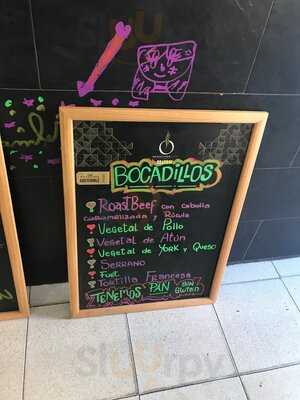 BOCADILLOS
ROAST BEEF con Cebolla
Caramelizada y Rúcula
Vegetal de Pollo
Vegetal de Atún
Vegetal de YORK y Queso
SERRANO
Fuet
Tortilla Francesa
TENEMOS PAN SIN
GLUTEN